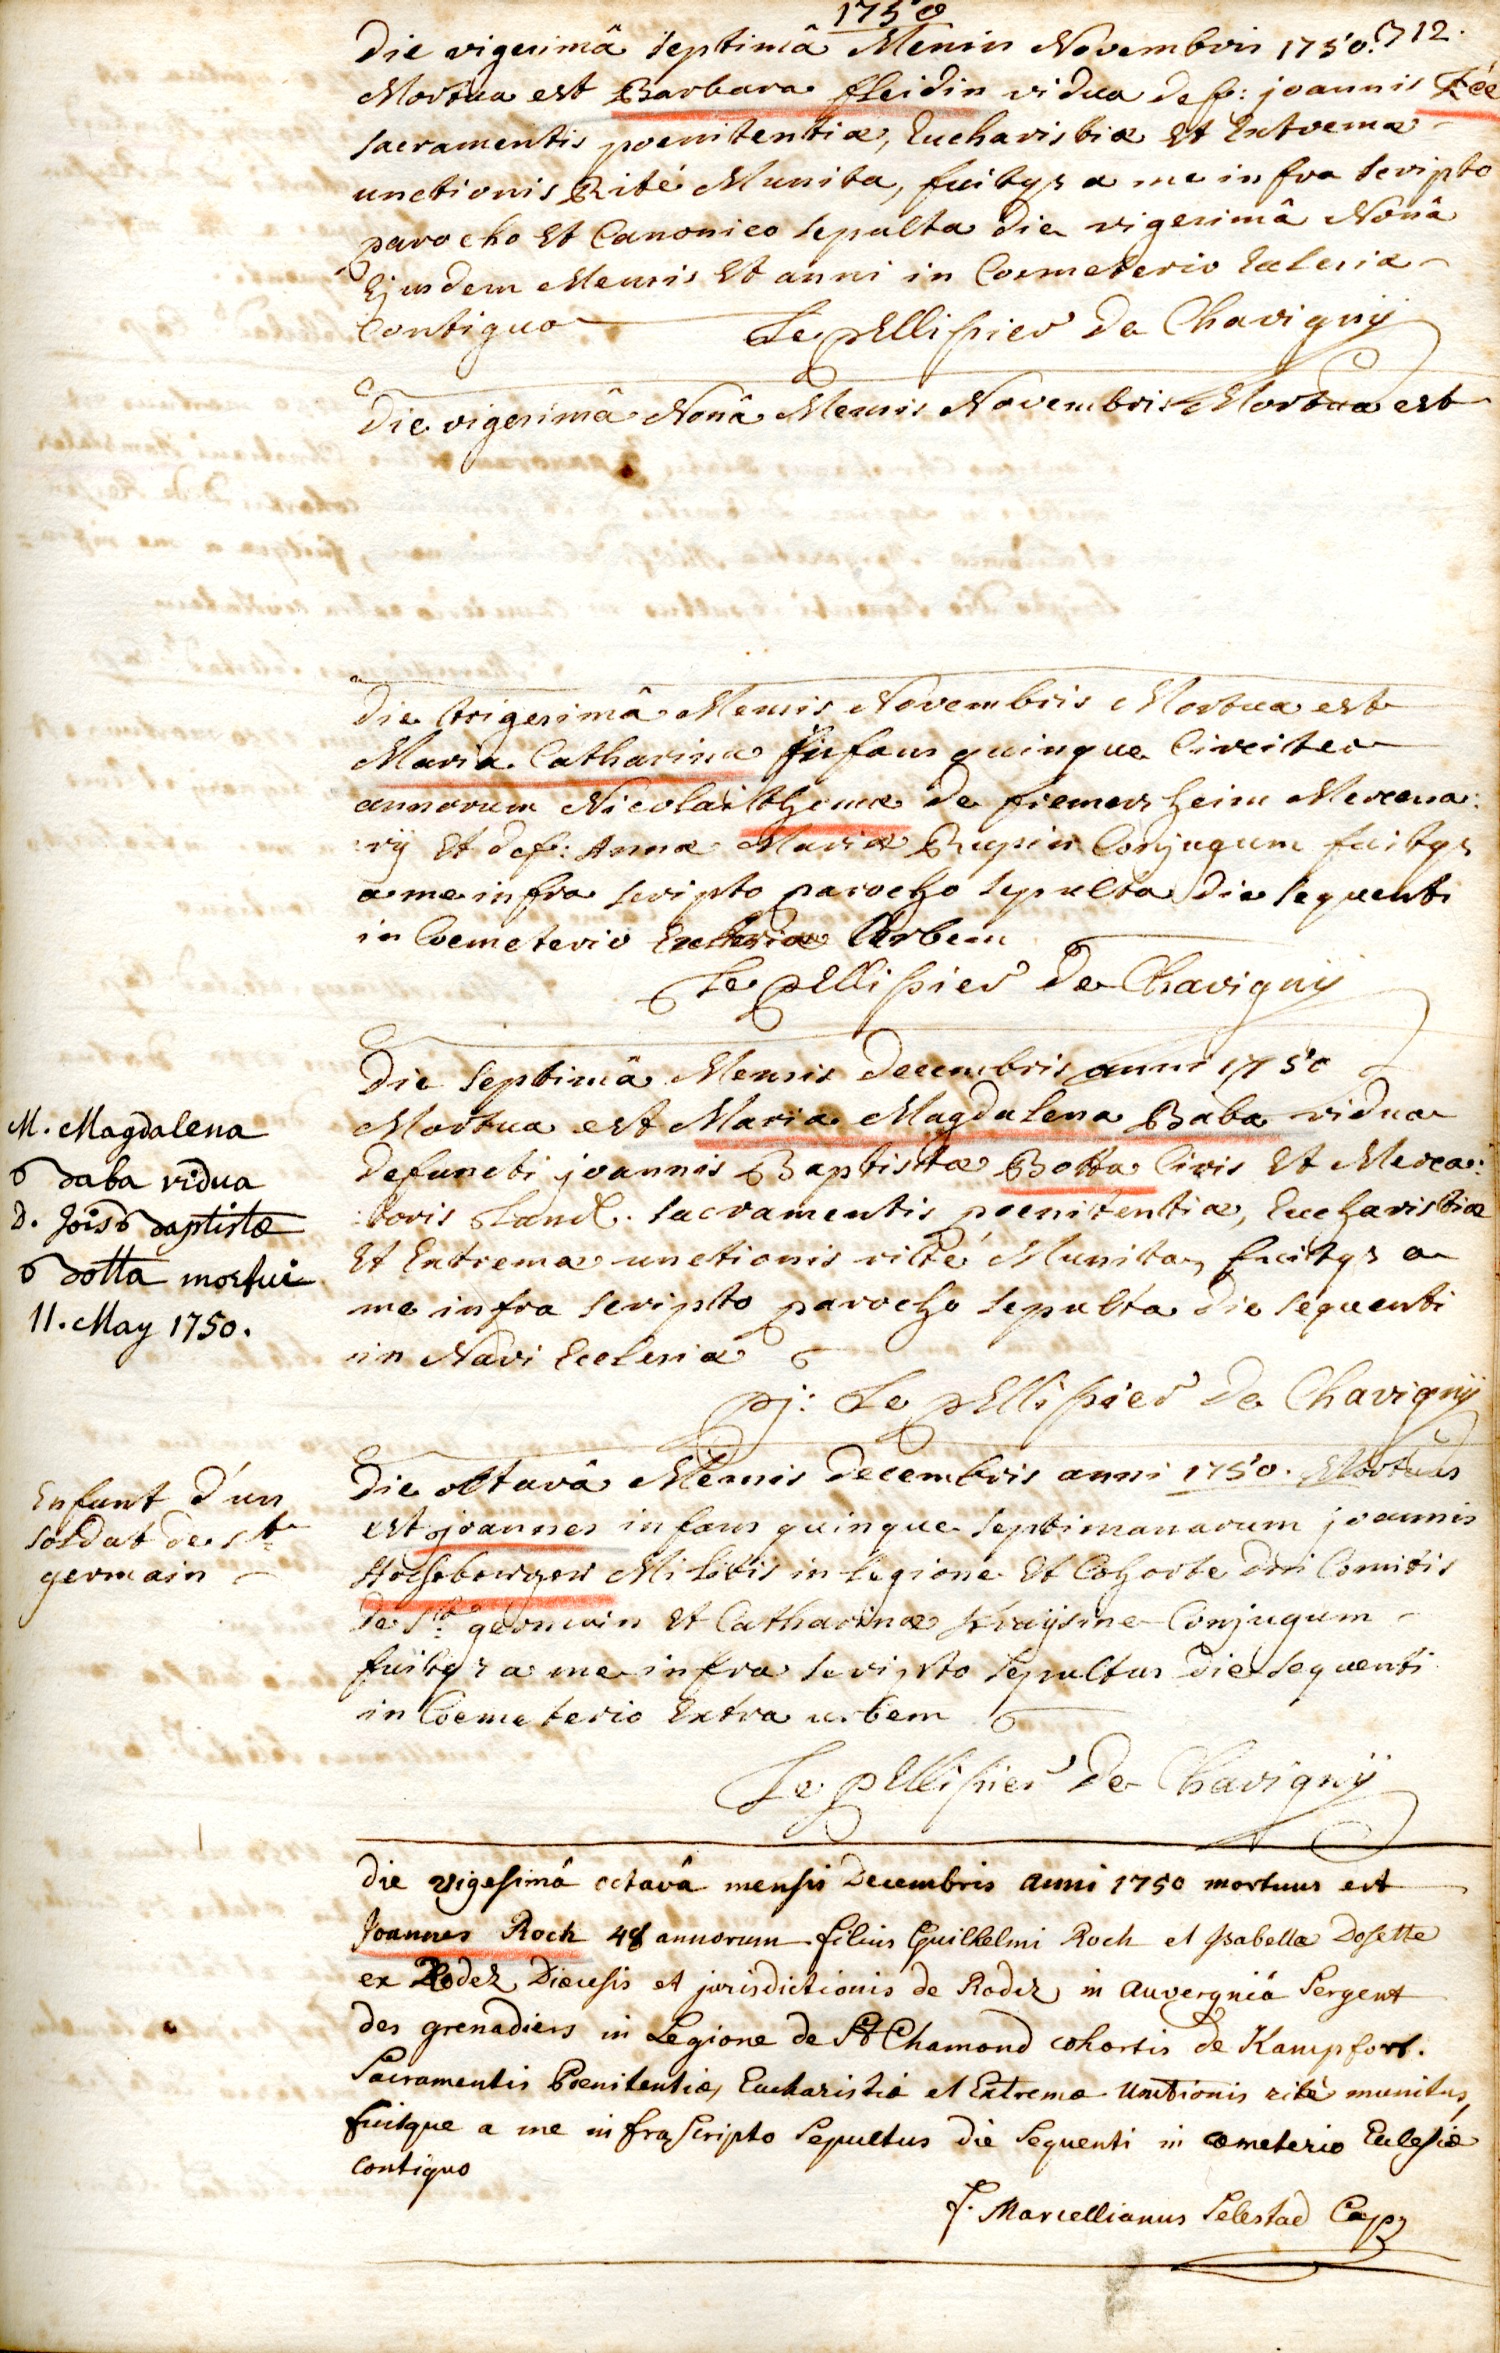 1750
712.
Die vigesimâ septimâ Mensis Novembris 1750.
Mortua est Barbara fleidin vidua def: joannis Fée
sacramentis poenitentiæ, Eucharistiæ Et Extremæ
unctionis Rité Munita, fuitq3 a me infra scripto
parocho Et Canonico sepulta die vigesimâ Nonâ
Ejusdem Mensis Et anni in Coemeterio Ecclesiæ
Contiguo
Le pEllissier De Chavignÿ
Die vigesimâ Nonâ Mensis Novembris Mortua est
Die trigesimâ Mensis Novembris Mortua est
Maria Catharina infans quinque Circiter
annorum Nicolai thomæ de fremersheim Mercena:
:rÿ Et def: Annæ Mariæ Rupin Conjugum fuitq3
a me infra scripto parocho sepulta die sequenti
in Coemeterio Urbem
Le pEllissier De Chavignÿ
Die septimâ Mensis Decembris anni 1750
Mortua est Maria Magdalena Baba vidua
defuncti joannis Baptistæ Botta Civis Et Merca:
:toris Land. sacramentis poenitentiæ, Eucharistiæ
Et Extremæ unctionis rité Munita, fuitq3 a
me infra scripto parocho sepulta die sequenti
in Navi Ecclesiæ
pj: Le pEllissier De Chavignÿ
M. Magdalena
Baba vidua
D. Jois Baptistæ
Botta mortui
11. May 1750.
Die octavâ Mensis Decembris anni 1750. Mortuus
est joannes infans quinque septimanarum joannis
Hocheberger Militis in Legione Et Cohorte Dni Comitis
de St germain Et Catharinæ Kraÿsine Conjugum
fuitq3 a me infra scripto sepultus die sequenti
in Coemeterio Extra urbem
Le pEllissier De Chavignÿ
Enfant d'un
soldat de st
germain
Die vigesimâ octavâ mensis Decembris anni 1750 mortuus est
Joannes Roch 48 annorum filius Guilhelmi Roch et Isabellæ Dosette
ex Rodez Diœcesis et jurisdictionis de Rodez in Auvergniâ Sergent
des grenadiers in Legione de St Chamond cohortis de Kampfort.
Sacramentis Pœnitentiæ, Eucharistiæ et Extremæ Unctionis rité munitus,
fuitque a me infrascripto Sepultus die Sequenti in cœmeterio Ecclesiæ
contiguo
f. Marcellianus Selestad Cap3